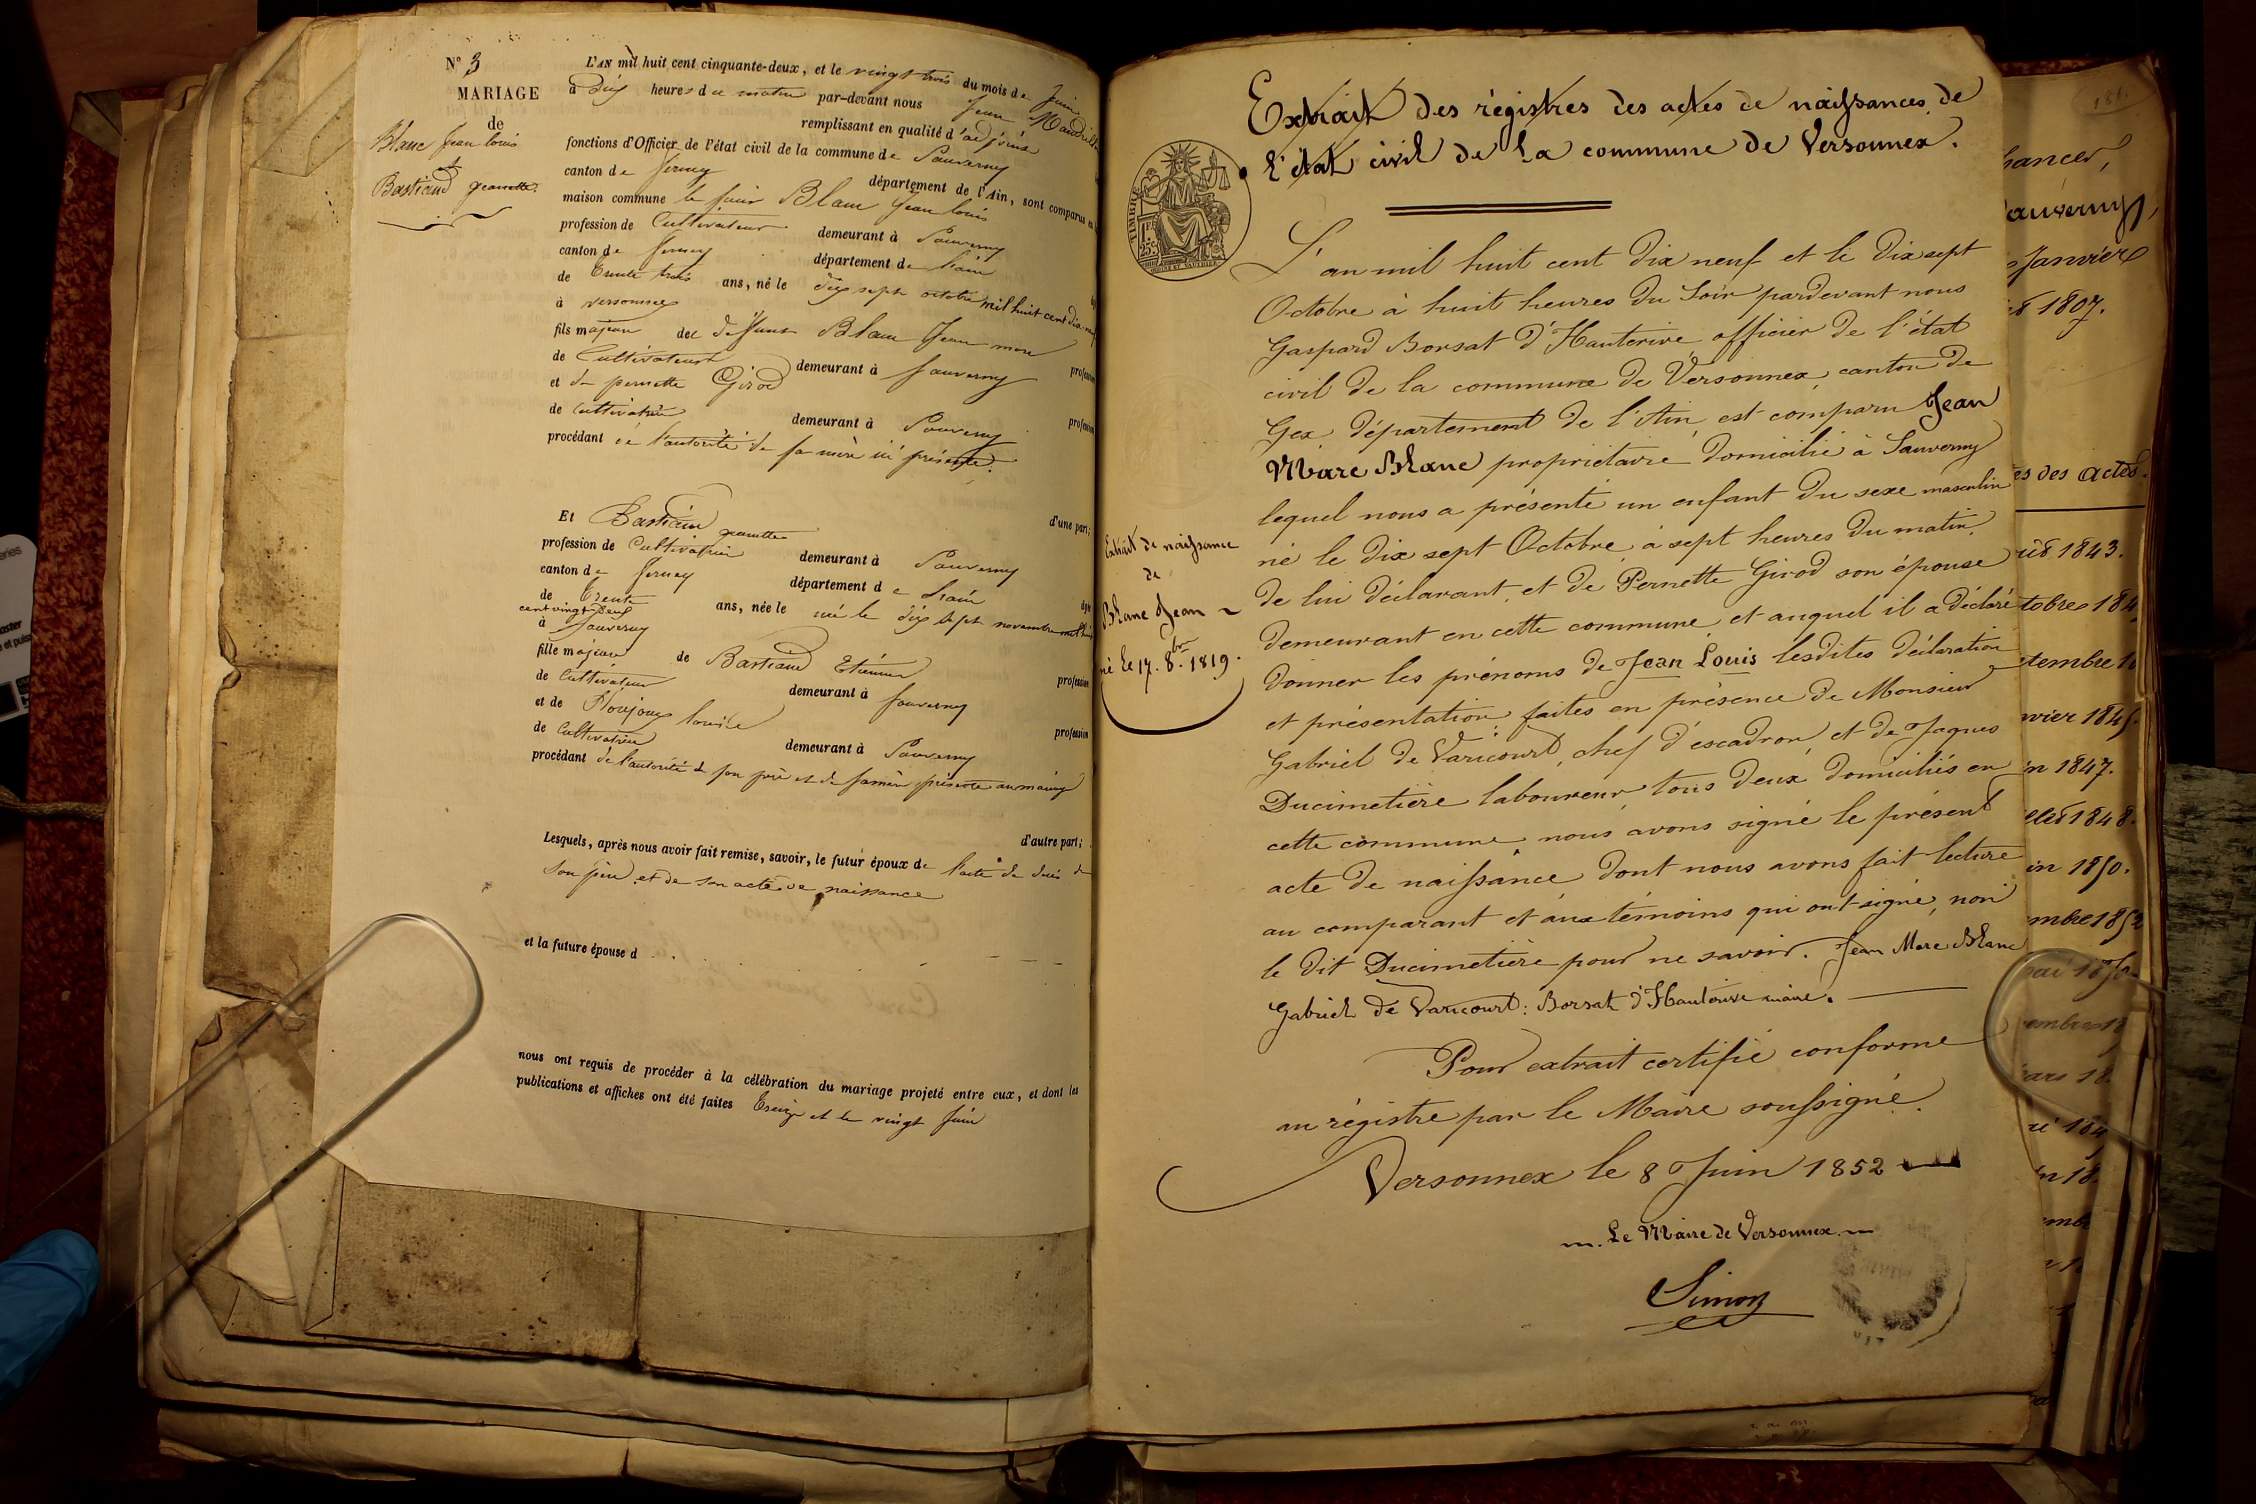 N° 3
MARIAGE
de
Blanc Jean Louis
et
Bastian Jeannette.
L'AN mil huit cent cinquante-deux, et le vingt trois du mois de Juin
à dix heures du matin par-devant nous Jean
remplissant en qualité d'adjoint
fonctions d'Officier de l'état civil de la commune de Sauverny
canton de Ferney département de l'Ain, sont comparus en la
maison commune le sieur Blanc Jean Louis
profession de Cultivateur demeurant à Sauverny
canton de Ferney département de l'ain
de Trente trois ans, né le dix sept octobre mil huit cent dix-neuf
à Versonnex
fils majeur de deffunt Blanc Jean marc
de Cultivateur demeurant à Sauverny profession
et de pernette Girod
de Cultivatrice demeurant à Sauverny profession
procédant de l'autorité de sa mère ici présente.
d'une part;
Et Bastian Jeannette
profession de Cultivatrice demeurant à Sauverny
canton de Ferney département de l'ain
de Trente ans, née le né le dix sept novembre mil huit
cent vingt deux
à Sauverny
fille majeure de Bastian Etienne
de Cultivateur demeurant à Sauverny profession
et de Louise
de Cultivatrice demeurant à Sauverny profession
procédant de l'autorité de son père et de sa mère présente au mariage
d'autre part;
Lesquels, après nous avoir fait remise, savoir, le futur époux de l'acte de décès de
son père et de son acte de naissance
et la future épouse d
nous ont requis de procéder à la célébration du mariage projeté entre eux, et dont les
publications et affiches ont été faites treize et le vingt Juin
Extrait des régistres des actes de naissances de
l'état civil de la commune de Versonnex.
TIMBRE
25c
L'an mil huit cent dix neuf et le dix sept
Octobre à huit heures du Soir pardevant nous
Gaspard Borsat d'Hauterive officier de l'état
civil de la commune de Versonnex, canton de
Gex département de l'Ain, est comparu Jean
Marc Blanc propriétaire domicilié à Sauverny
lequel nous a présenté un enfant du sexe masculin
né le dix sept Octobre à sept heures du matin,
de lui déclarant, et de Pernette Girod son épouse
demeurant en cette commune, et auquel il a déclaré
donner les prénoms de Jean Louis lesdites déclaration
et présentation faites en présence de Monsieur
Gabriel de Varicourt, chef d'escadron, et de Jaques
Ducimetière laboureur tous deux domiciliés en
cette commune, nous avons signé le présent
acte de naissance dont nous avons fait lecture
au comparant et aux témoins qui ont signé, non
le dit Ducimetière pour ne savoir. Jean Marc Blanc
Gabriel de Varicourt: Borsat d'Hauterive maire.
Pour extrait certifié conforme
au régistre par le Maire soussigné.
Versonnex le 8 Juin 1852
Le Maire de Versonnex.
Simon
Extrait de naissance
de
Blanc Jean ~
né le 17. 8.bre 1819.
181.
auverny,
Janvier
1807.
es des actes.
1843.
tobre 184
tembre 1
vier 184
in 1847.
1848.
in 1850.
mbre 1852